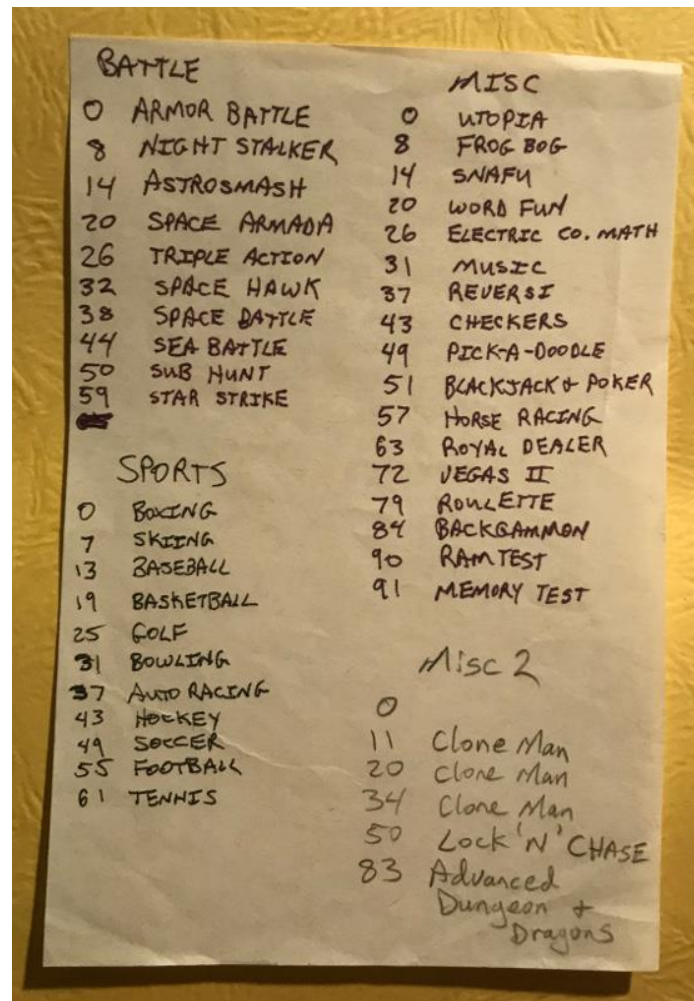 BATTLE
0 ARMOR BATTLE
8 NIGHT STALKER
14 ASTROSMASH
20 SPACE ARMADA
26 TRIPLE ACTION
32 SPACE HAWK
38 SPACE BATTLE
44 SEA BATTLE
50 SUB HUNT
59 STAR STRIKE
SPORTS
0 BOXING
7 SKIING
13 BASEBALL
19 BASKETBALL
25 GOLF
31 BOWLING
37 AUTO RACING
43 HOCKEY
49 SOCCER
55 FOOTBALL
61 TENNIS
MISC
0 UTOPIA
8 FROG BOG
14 SNAFU
20 WORD FUN
26 ELECTRIC CO. MATH
31 MUSIC
37 REVERSI
43 CHECKERS
49 PICK-A-DOODLE
51 BLACKJACK & POKER
57 HORSE RACING
63 ROYAL DEALER
72 VEGAS II
79 ROULETTE
84 BACKGAMMON
90 RAM TEST
91 MEMORY TEST
Misc 2
0
11 Clone Man
20 Clone Man
34 Clone Man
50 Lock 'N' CHASE
83 Advanced
Dungeon &
Dragons